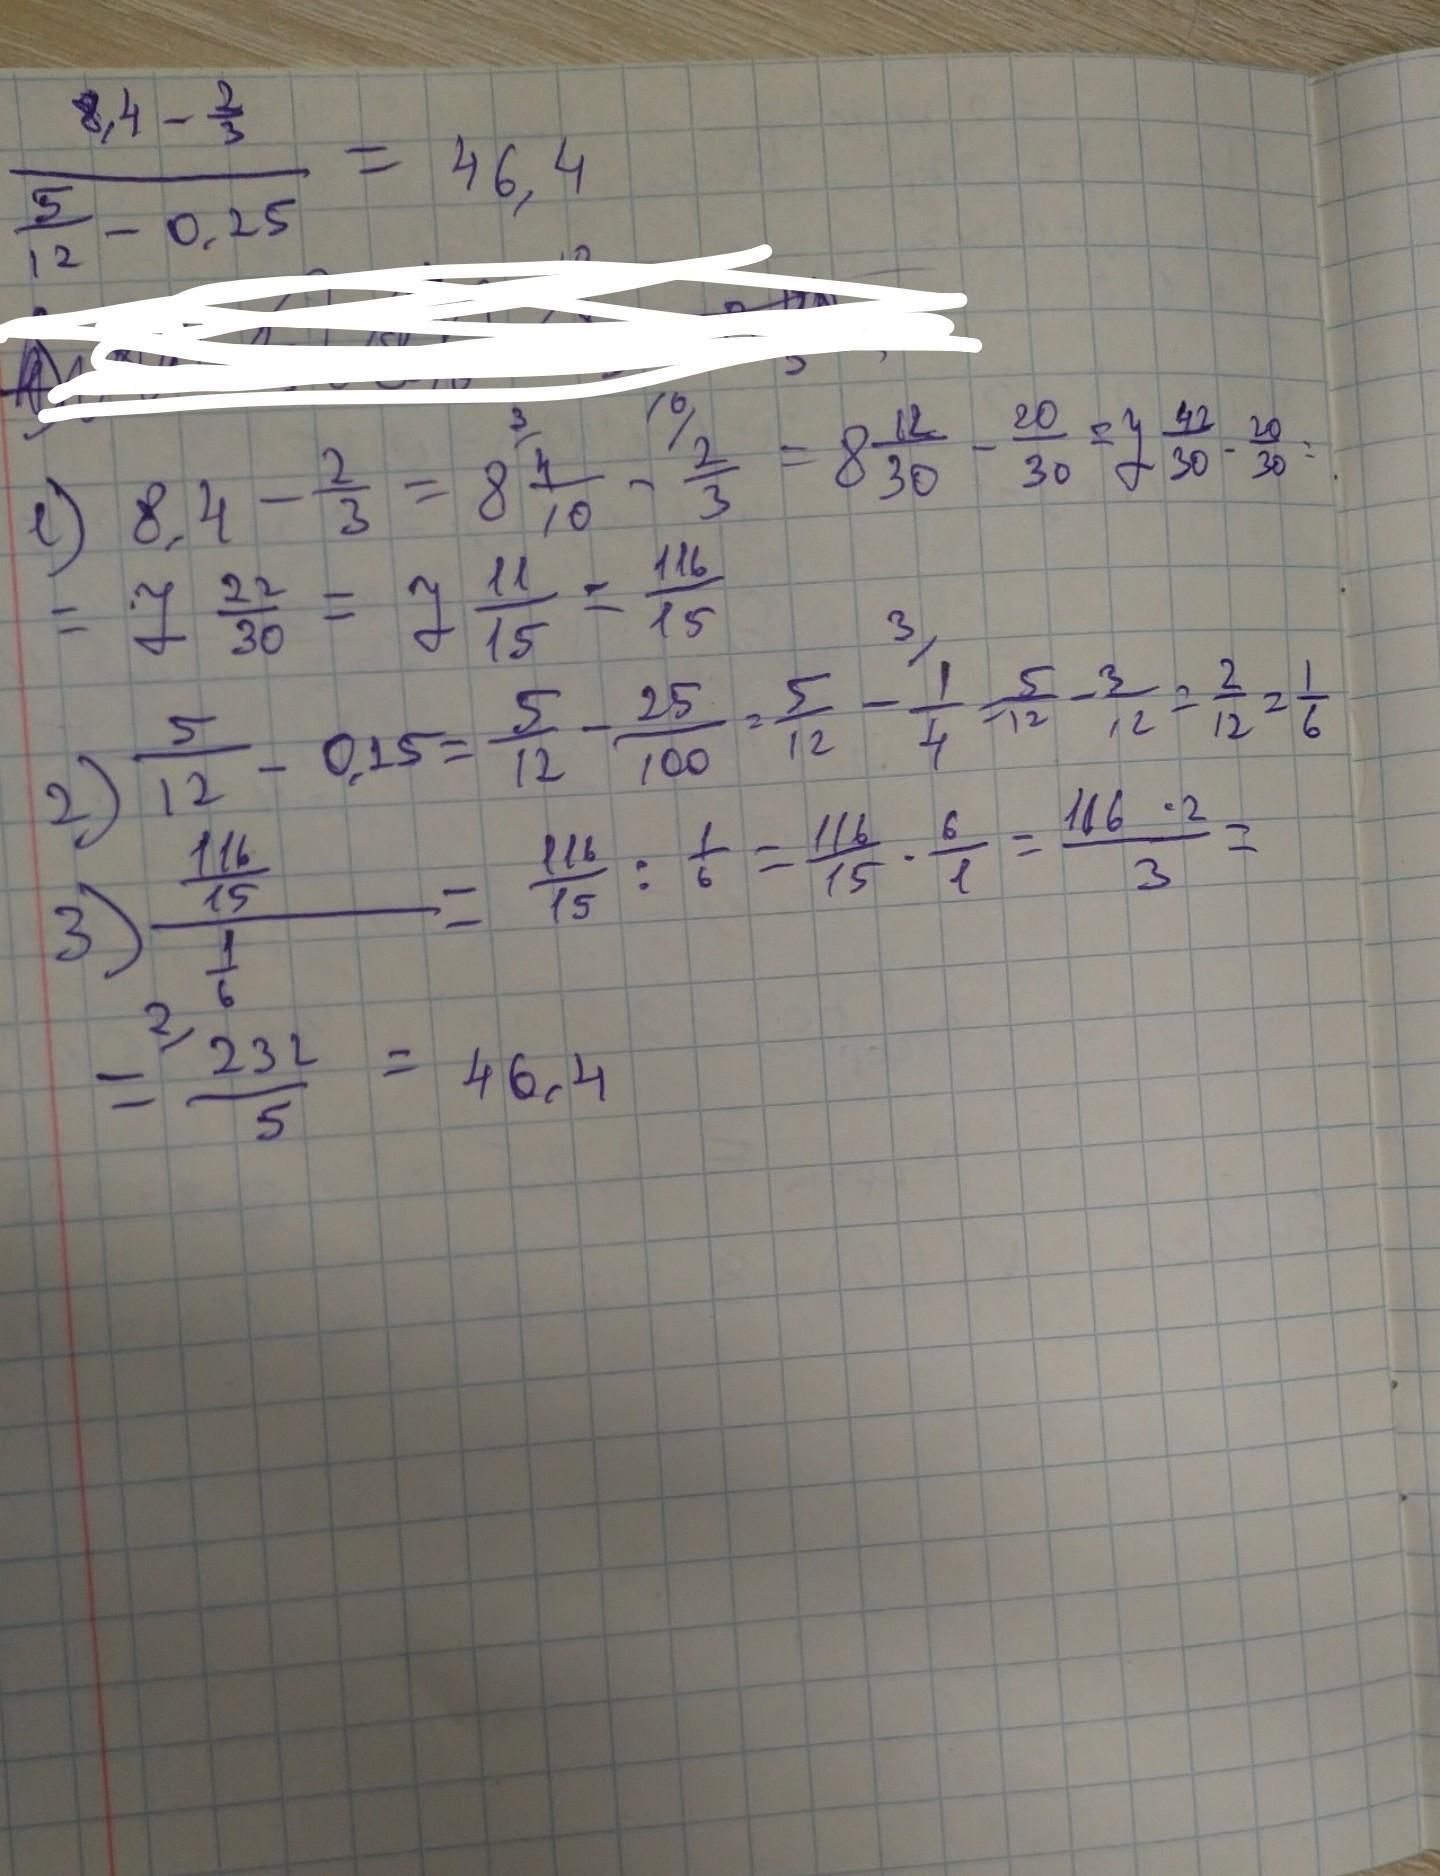 8,4 - 2/3 / 5/12 - 0,25 = 46,4
1) 8,4 - 2/3 = 8 4/10 3/ - 2/3 10/ = 8 12/30 - 20/30 = 7 42/30 - 20/30 =
= 7 22/30 = 7 11/15 = 116/15
2) 5/12 - 0,25 = 5/12 - 25/100 = 5/12 - 1/4 3/ = 5/12 - 3/12 = 2/12 = 1/6
3) 116/15 / 1/6 = 116/15 : 1/6 = 116/15 · 6/1 = 116 · 2/3 =
= 2/ 232/5 = 46,4